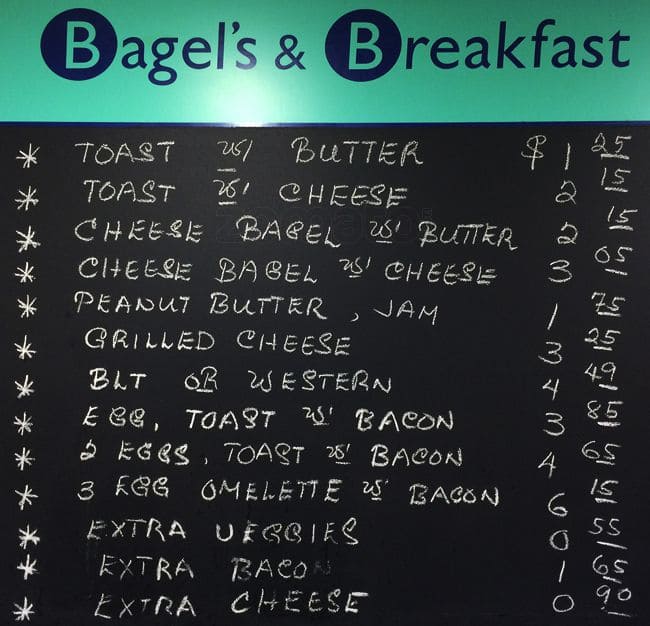 Bagel's & Breakfast
* TOAST w/ BUTTER $1 25
* TOAST w/ CHEESE 2 15
* CHEESE BAGEL w/ BUTTER 2 15
* CHEESE BAGEL w/ CHEESE 3 05
* PEANUT BUTTER, JAM 1 75
* GRILLED CHEESE 3 25
* BLT OR WESTERN 4 49
* EGG, TOAST w/ BACON 3 85
* 2 EGGS, TOAST w/ BACON 4 65
* 3 EGG OMELETTE w/ BACON 6 15
* EXTRA VEGGIES 0 55
* EXTRA BACON 1 65
* EXTRA CHEESE 0 90